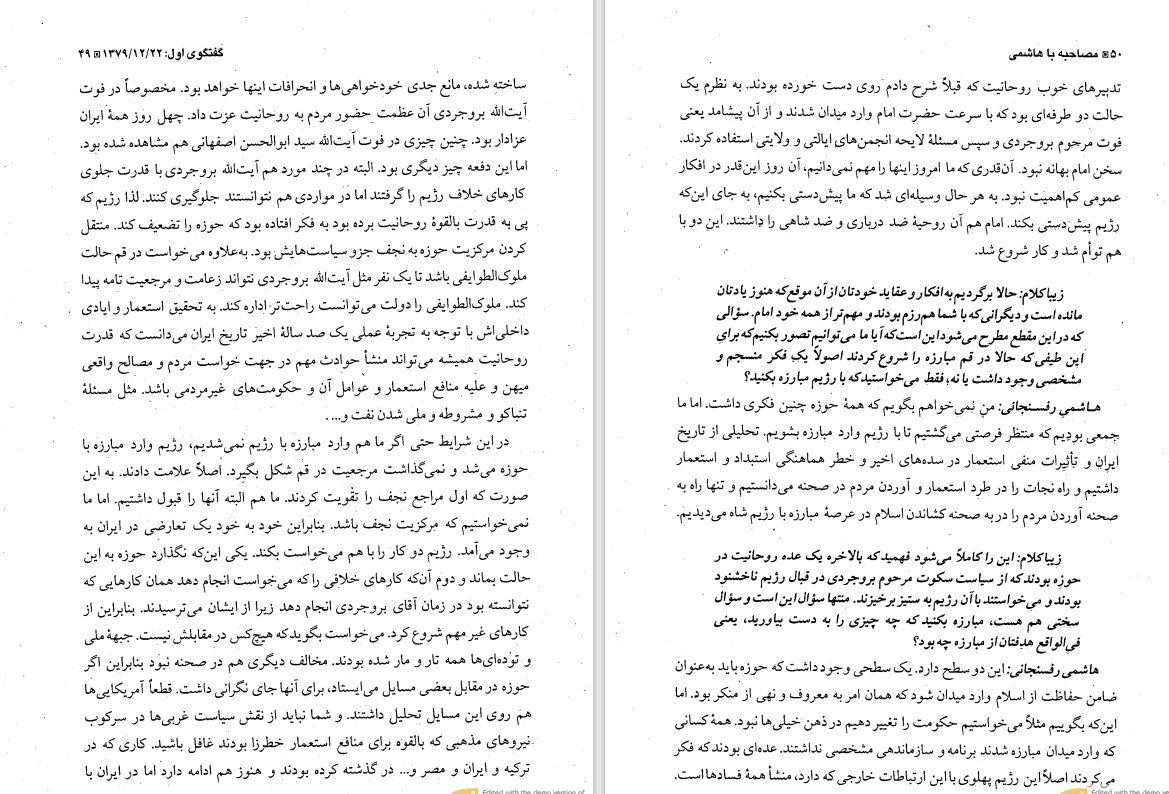 گفتگوی اول: ۱۳۷۹/۱۲/۲۲ ▣ ۴۹
ساخته شده، مانع جدی خودخواهی‌ها و انحرافات اینها خواهد بود. مخصوصاً در فوت
آیت‌الله بروجردی آن عظمت حضور مردم به روحانیت عزت داد. چهل روز همهٔ ایران
عزادار بود. چنین چیزی در فوت آیت‌الله سید ابوالحسن اصفهانی هم مشاهده شده بود.
اما این دفعه چیز دیگری بود. البته در چند مورد هم آیت‌الله بروجردی با قدرت جلوی
کارهای خلاف رژیم را گرفتند اما در مواردی هم نتوانستند جلوگیری کنند. لذا رژیم که
پی به قدرت بالقوهٔ روحانیت برده بود به فکر افتاده بود که حوزه را تضعیف کند. منتقل
کردن مرکزیت حوزه به نجف جزو سیاست‌هایش بود. به‌علاوه می‌خواست در قم حالت
ملوک‌الطوایفی باشد تا یک نفر مثل آیت‌الله بروجردی نتواند زعامت و مرجعیت تامه پیدا
کند. ملوک‌الطوایفی را دولت می‌توانست راحت‌تر اداره کند. به تحقیق استعمار و ایادی
داخلی‌اش با توجه به تجربهٔ عملی یک صد سالهٔ اخیر تاریخ ایران می‌دانست که قدرت
روحانیت همیشه می‌تواند منشأ حوادث مهم در جهت خواست مردم و مصالح واقعی
میهن و علیه منافع استعمار و عوامل آن و حکومت‌های غیرمردمی باشد. مثل مسئلهٔ
تنباکو و مشروطه و ملی شدن نفت و....
در این شرایط حتی اگر ما هم وارد مبارزه با رژیم نمی‌شدیم، رژیم وارد مبارزه با
حوزه می‌شد و نمی‌گذاشت مرجعیت در قم شکل بگیرد. اصلاً علامت دادند. به این
صورت که اول مراجع نجف را تقویت کردند. ما هم البته آنها را قبول داشتیم. اما ما
نمی‌خواستیم که مرکزیت نجف باشد. بنابراین خود به خود یک تعارضی در ایران به
وجود می‌آمد. رژیم دو کار را با هم می‌خواست بکند. یکی این‌که نگذارد حوزه به این
حالت بماند و دوم آن‌که کارهای خلافی را که می‌خواست انجام دهد همان کارهایی که
نتوانسته بود در زمان آقای بروجردی انجام دهد زیرا از ایشان می‌ترسیدند. بنابراین از
کارهای غیر مهم شروع کرد. می‌خواست بگوید که هیچ‌کس در مقابلش نیست. جبههٔ ملی
و توده‌ای‌ها همه تار و مار شده بودند. مخالف دیگری هم در صحنه نبود بنابراین اگر
حوزه در مقابل بعضی مسایل می‌ایستاد، برای آنها جای نگرانی داشت. قطعاً آمریکایی‌ها
هم روی این مسایل تحلیل داشتند. و شما نباید از نقش سیاست غربی‌ها در سرکوب
نیروهای مذهبی که بالقوه برای منافع استعمار خطرزا بودند غافل باشید. کاری که در
ترکیه و ایران و مصر و... در گذشته کرده بودند و هنوز هم ادامه دارد اما در ایران با
Edited with the demo version of
۵۰ ▣ مصاحبه با هاشمی
تدبیرهای خوب روحانیت که قبلاً شرح دادم روی دست خورده بودند. به نظرم یک
حالت دو طرفه‌ای بود که با سرعت حضرت امام وارد میدان شدند و از آن پیشامد یعنی
فوت مرحوم بروجردی و سپس مسئلهٔ لایحه انجمن‌های ایالتی و ولایتی استفاده کردند.
سخن امام بهانه نبود. آن‌قدری که ما امروز اینها را مهم نمی‌دانیم، آن روز این‌قدر در افکار
عمومی کم‌اهمیت نبود. به هر حال وسیله‌ای شد که ما پیش‌دستی بکنیم، به جای این‌که
رژیم پیش‌دستی بکند. امام هم آن روحیهٔ ضد درباری و ضد شاهی را داشتند. این دو با
هم توأم شد و کار شروع شد.
زیباکلام: حالا برگردیم به افکار و عقاید خودتان از آن موقع که هنوز یادتان
مانده است و دیگرانی که با شما هم‌رزم بودند و مهم‌تر از همه خود امام. سؤالی
که در این مقطع مطرح می‌شود این است که آیا ما می‌توانیم تصور بکنیم که برای
این طیفی که حالا در قم مبارزه را شروع کردند اصولاً یک فکر منسجم و
مشخصی وجود داشت یا نه، فقط می‌خواستید که با رژیم مبارزه بکنید؟
هاشمی رفسنجانی: من نمی‌خواهم بگویم که همهٔ حوزه چنین فکری داشت. اما ما
جمعی بودیم که منتظر فرصتی می‌گشتیم تا با رژیم وارد مبارزه بشویم. تحلیلی از تاریخ
ایران و تأثیرات منفی استعمار در سده‌های اخیر و خطر هماهنگی استبداد و استعمار
داشتیم و راه نجات را در طرد استعمار و آوردن مردم در صحنه می‌دانستیم و تنها راه به
صحنه آوردن مردم را در به صحنه کشاندن اسلام در عرصهٔ مبارزه با رژیم شاه می‌دیدیم.
زیباکلام: این را کاملاً می‌شود فهمید که بالاخره یک عده روحانیت در
حوزه بودند که از سیاست سکوت مرحوم بروجردی در قبال رژیم ناخشنود
بودند و می‌خواستند با آن رژیم به ستیز برخیزند. منتها سؤال این است و سؤال
سختی هم هست، مبارزه بکنید که چه چیزی را به دست بیاورید، یعنی
فی‌الواقع هدفتان از مبارزه چه بود؟
هاشمی رفسنجانی: این دو سطح دارد. یک سطحی وجود داشت که حوزه باید به‌عنوان
ضامن حفاظت از اسلام وارد میدان شود که همان امر به معروف و نهی از منکر بود. اما
این‌که بگوییم مثلاً می‌خواستیم حکومت را تغییر دهیم در ذهن خیلی‌ها نبود. همهٔ کسانی
که وارد میدان مبارزه شدند برنامه و سازماندهی مشخصی نداشتند. عده‌ای بودند که فکر
می‌کردند اصلاً این رژیم پهلوی با این ارتباطات خارجی که دارد، منشأ همهٔ فسادها است.